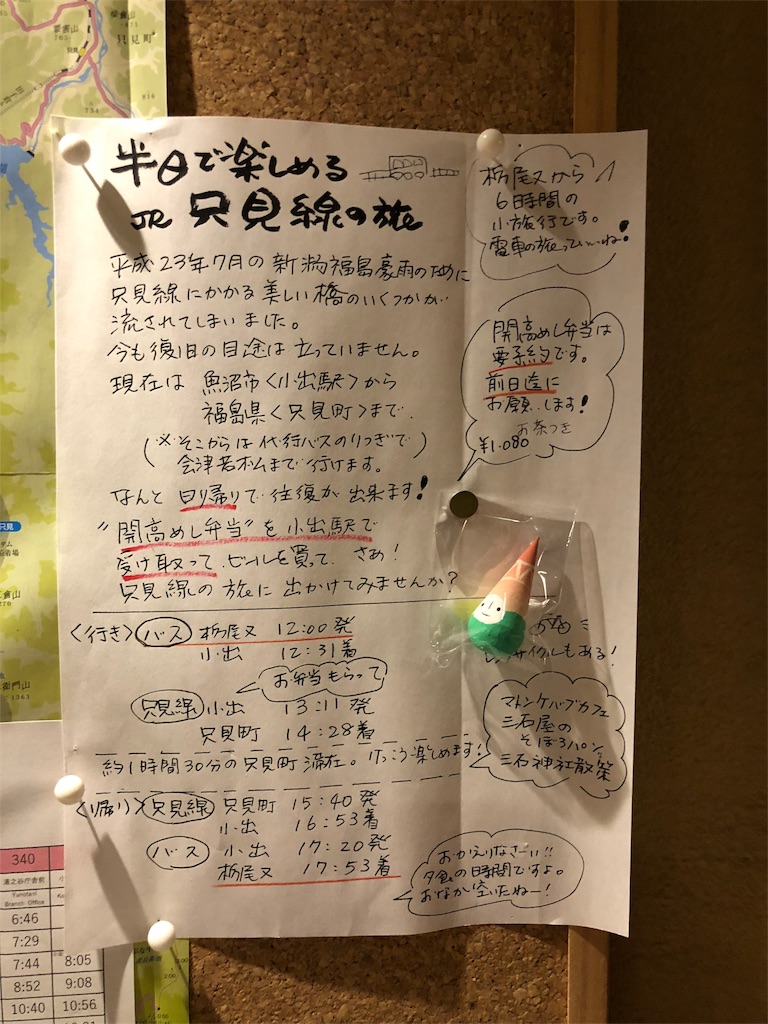 半日で楽しめる
JR 只見線の旅
平成23年7月の新潟福島豪雨のために
只見線にかかる美しい橋のいくつかが
流されてしまいました。
今も復旧の目途は立っていません。
現在は 魚沼市〈小出駅〉から
福島県〈只見町〉まで
(※そこからは代行バスのりつぎで
会津若松まで行けます。)
なんと日帰りで往復が出来ます!
"開高めし弁当"を小出駅で
受け取って、ビールを買って、さあ!
只見線の旅に出かけてみませんか?
〈行き〉 バス 栃尾又 12:00発
小出 12:31着
お弁当もらって
只見線 小出 13:11発
只見町 14:28着
約1時間30分の只見町滞在。けっこう楽しめます!
〈帰り〉 只見線 只見町 15:40発
小出 16:53着
バス 小出 17:20発
栃尾又 17:53着
栃尾又から
6時間の
小旅行です。
電車の旅っていいね!
開高めし弁当は
要予約です。
前日迄に
お願いします!
お茶つき
¥1.080
サイクルもある!
マトンケバブカフェ
三石屋の
そぼろパン
三石神社散策
おかえりなさーい!!
夕食の時間ですよ。
おなか空いたねー!
只見町
340
湯之谷庁舎前
Yunotani
Branch Office
6:46
7:29
7:44 8:05
8:52 9:08
10:40 10:56